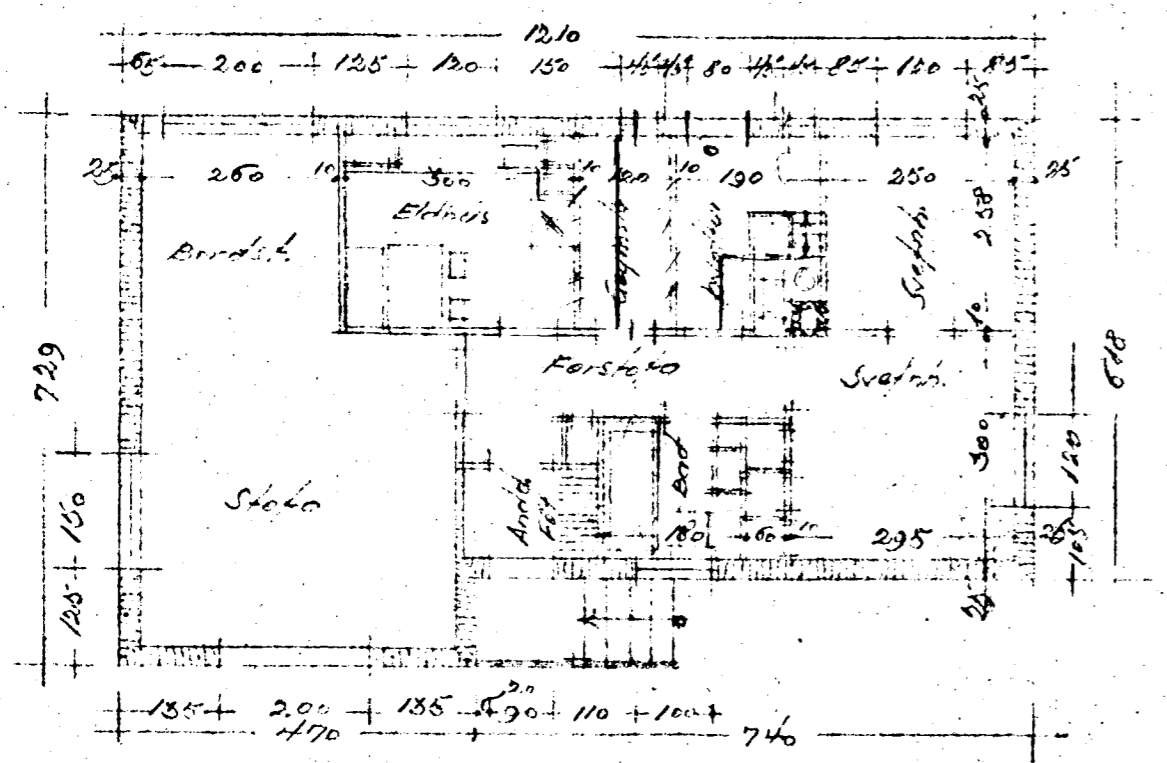 1210
65 200 125 120 150 45 45 80 45 85 150 85
25
25 260 10 300 10 120 10 190 250 25
Eldhús
Bordst.
Svefnh.
238
10
729
618
Forstofa
Svefnh.
300
120
Stofa
Bad
150
180 60 10 295
105
125
25
135 200 135 90 20 110 100
470 740